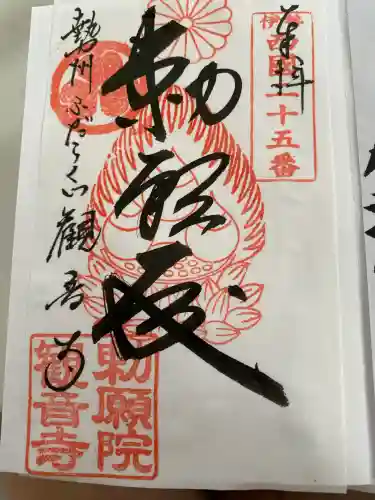 奉拝
伊勢
西国二十五番
勅願殿
勢州ふだらく山観音寺
勅願院
観音寺